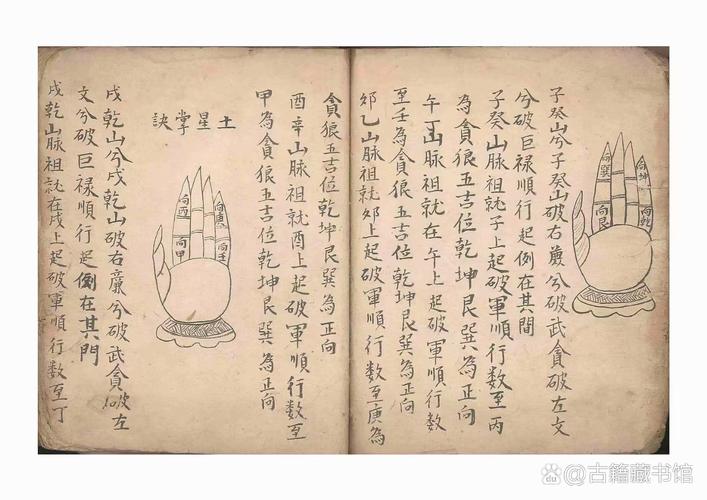 向巽
向坤
向艮
向乾
子癸山兮子癸山破右廉兮破武貪破左文
兮破巨禄順行起倒在其間
子癸山脉祖就子上起破軍順行数至丙
為貪狼五吉位乾坤艮巽為正向
午丁山脉祖就在午上起破軍順行数
至壬為貪狼五吉位乾坤艮巽為正向
卯乙山脉祖就卯上起破軍順行数至庚為
貪狼五吉位乾坤艮巽為正向
酉辛山脉祖就酉上起破軍順行数至
甲為貪狼五吉位乾坤艮巽為正向
土星掌訣
向壬
向酉
向甲
戌乾山兮戌乾山破右廉兮破武貪破左
文兮破巨禄順行起倒在其門
戌乾山脉祖就在戌上起破軍順行数至丁
@古籍藏书馆